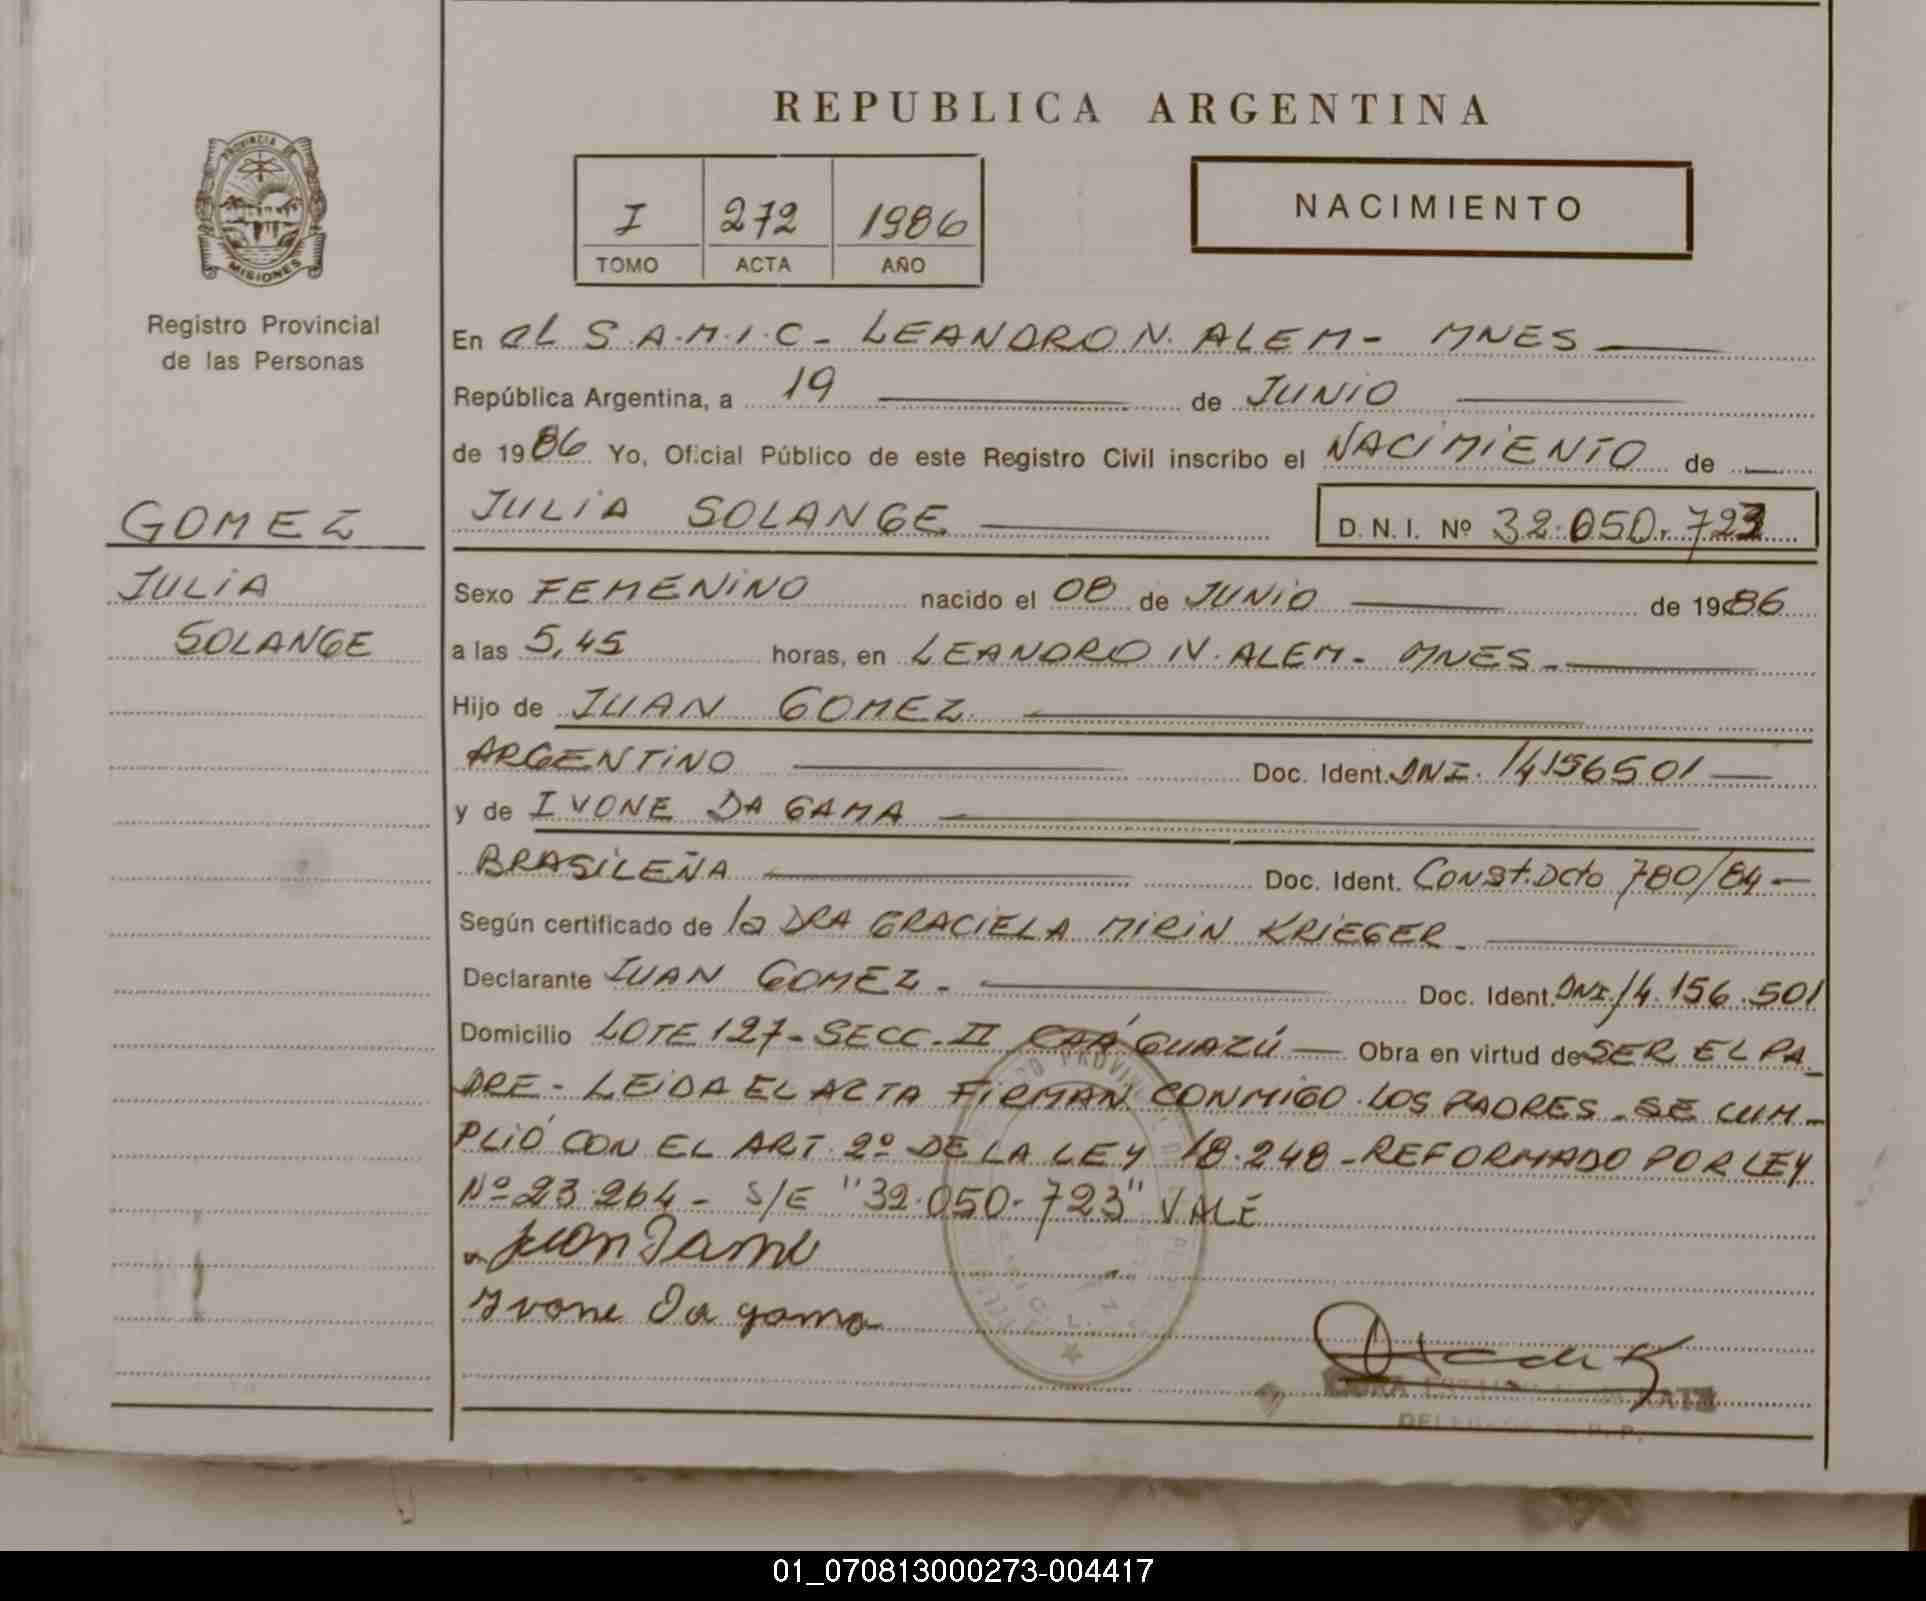 REPUBLICA ARGENTINA
PROVINCIA DE
MISIONES
Registro Provincial
de las Personas
I 272 1986
TOMO ACTA AÑO
NACIMIENTO
En el S.A.M.I.C - LEANDRO N. ALEM - MNES
República Argentina, a 19 de JUNIO
de 1986 Yo, Oficial Público de este Registro Civil inscribo el NACIMIENTO de
JULIA SOLANGE D.N.I. Nº 32.050.723
GOMEZ
JULIA
SOLANGE
Sexo FEMENINO nacido el 08 de JUNIO de 1986
a las 5,45 horas, en LEANDRO N. ALEM - MNES -
Hijo de JUAN GOMEZ
ARGENTINO Doc. Ident. DNI. 14156501
y de IVONE DA GAMA
BRASILEÑA Doc. Ident. Const. Dcto 780/84 -
Según certificado de la DRA GRACIELA MIRIN KRIEGER -
Declarante JUAN GOMEZ - Doc. Ident. DNI. 14.156.501
Domicilio LOTE 127 - SECC. II CAÁ GUAZÚ — Obra en virtud de SER EL PA_
DRE - LEIDA EL ACTA FIRMAN CONMIGO LOS PADRES - SE CUM-
PLIÓ CON EL ART. 2º DE LA LEY 18.248 - REFORMADO POR LEY
Nº 23.264 - S/E "32.050.723" VALE
Ivone Da gama
01_070813000273-004417